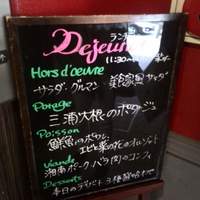 Dejeuner
ラン
11:30〜
Hors d'oeuvre
サラダ・グルマン 美食家風サラダ
Potage
三浦大根のポタージュ
Poisson
鮮魚のポワレ
エビと菜の花の
Viande
湘南ポーク バラ肉のコンフィ
Desserts
本日のデザート 3種盛合わせ